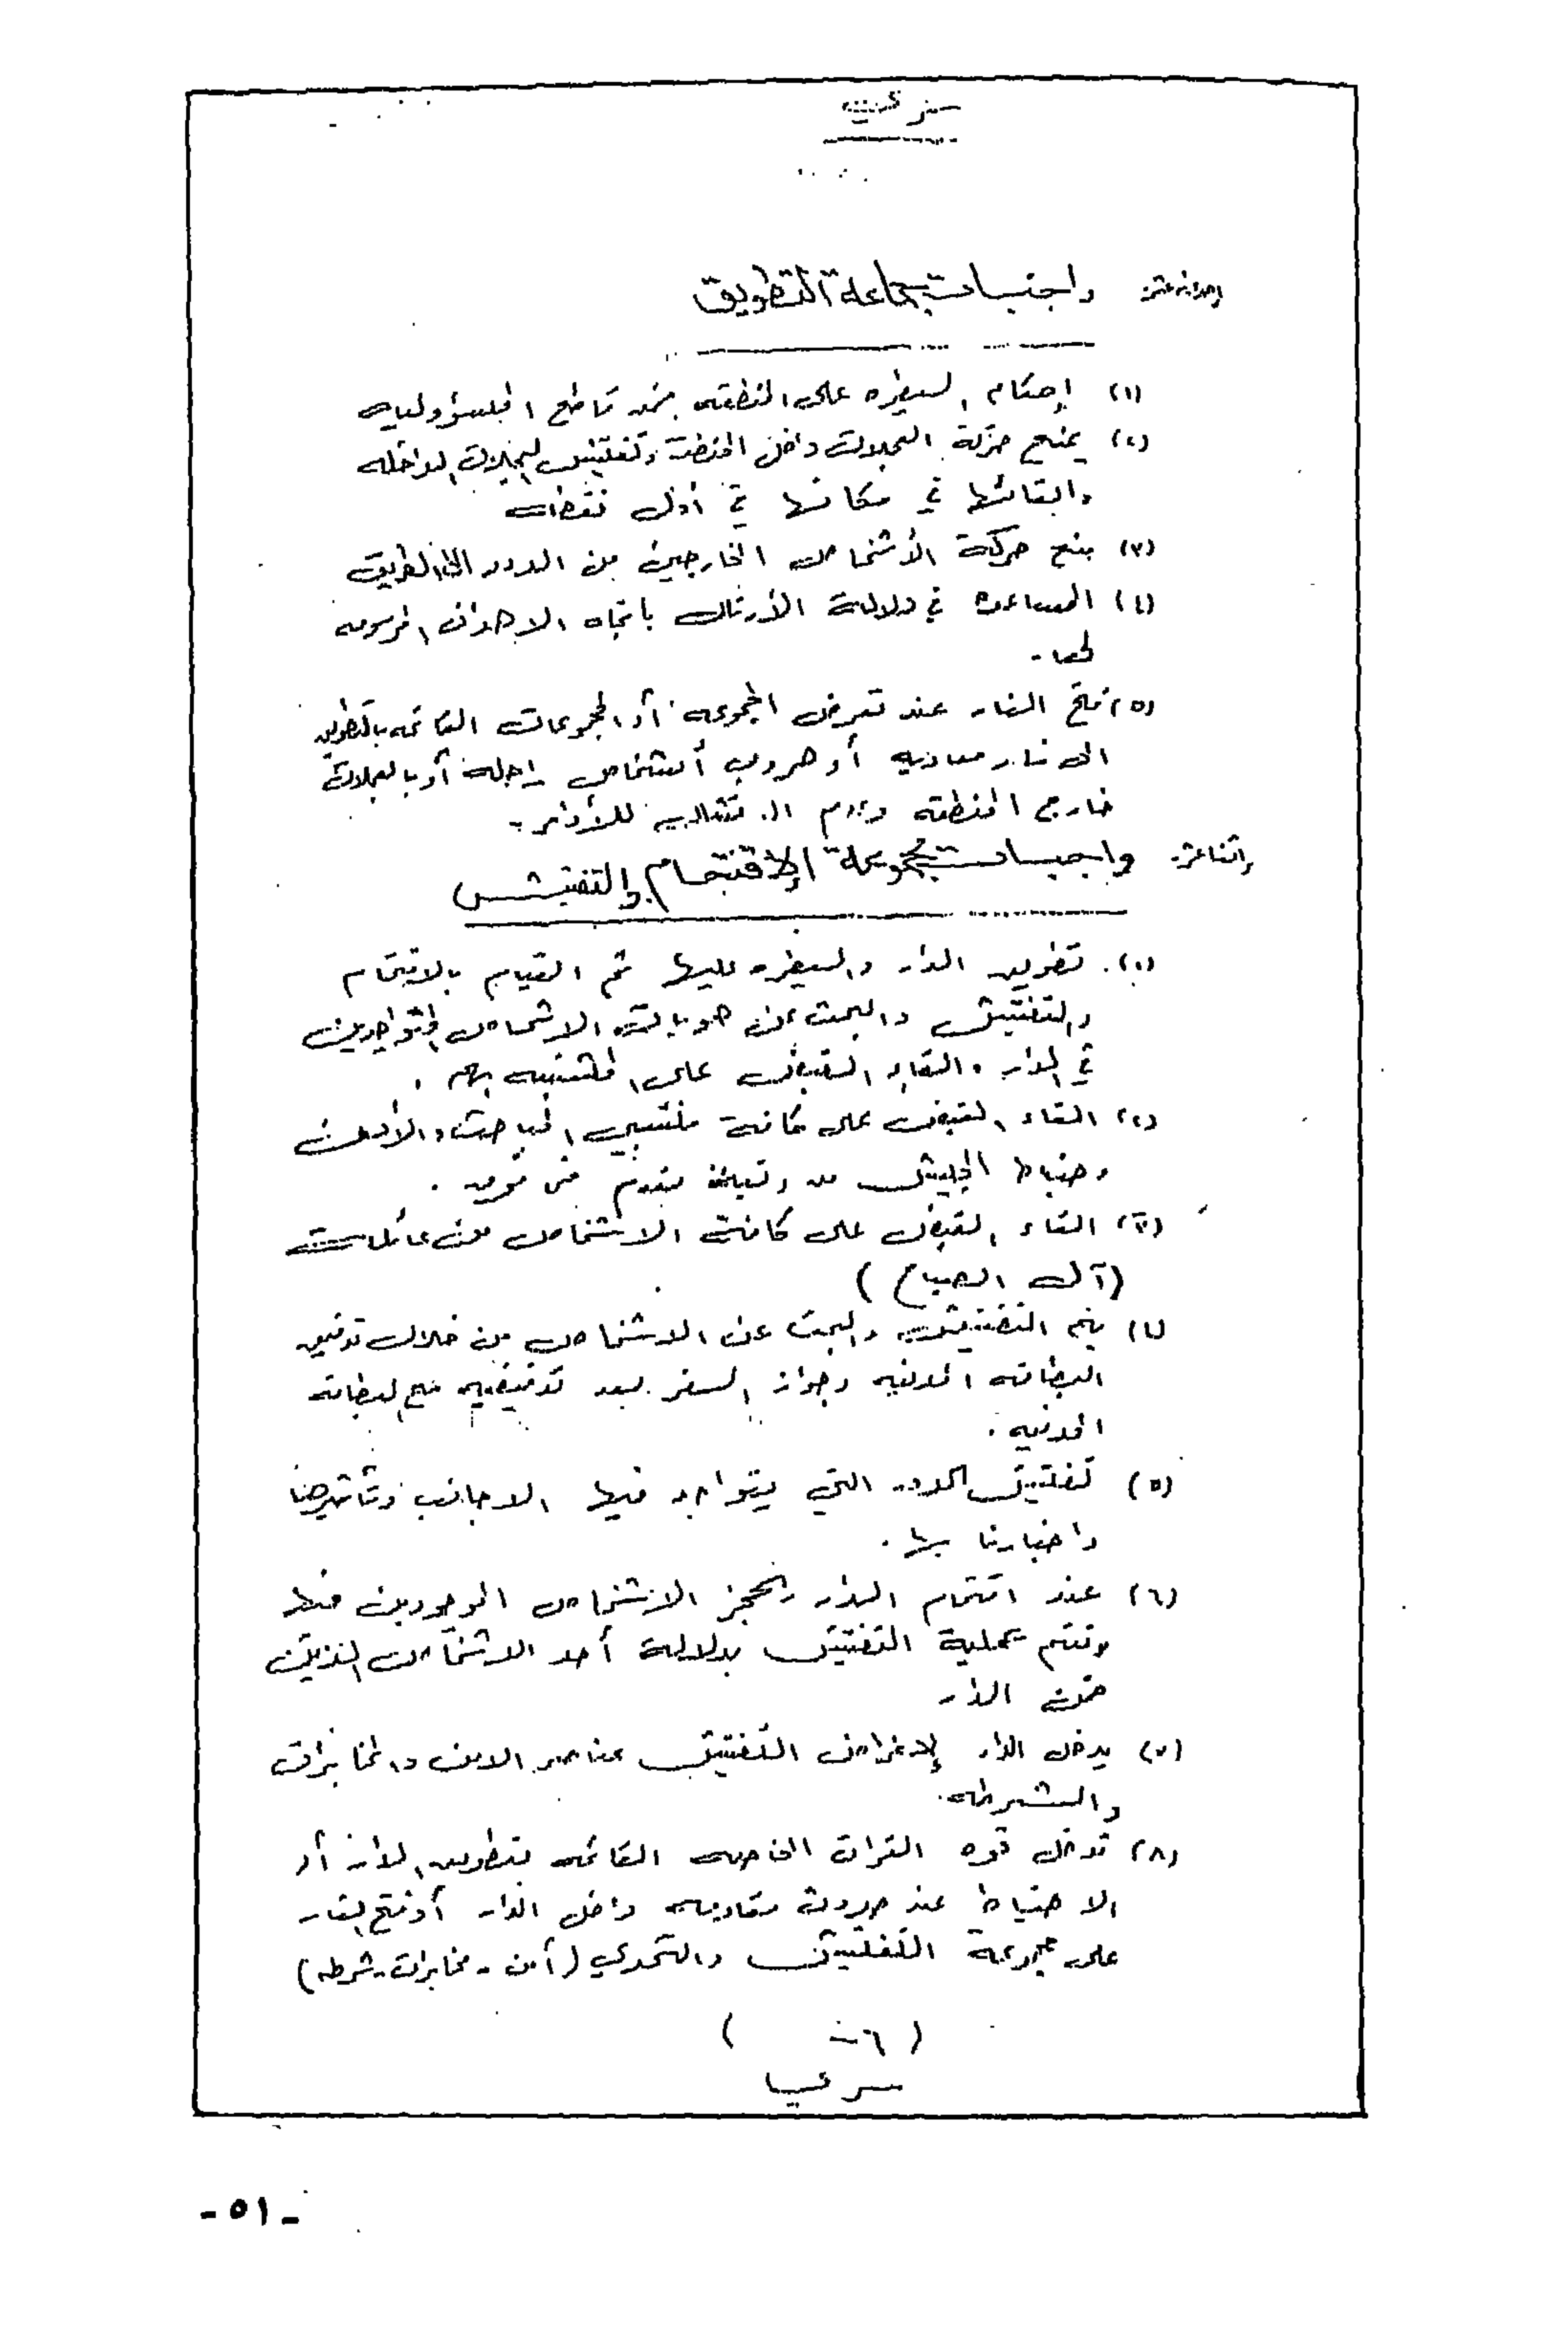 سري
واجبات جماعة التطويق
(١) إحكام السيطره على المنطقه ضمن قاطع المسؤوليه
(٢) يمنع حركة العجلات داخل المنطقة وتفتيش العجلات الداخله
وابقائها في مكانها في أول نقطه
(٣) منع حركة الأشخاص الخارجين من الدور الى الطريق
(٤) المساعده في دلالة الأرتال باتجاه الاهداف المرسومه
لها .
(٥) فتح النار عند تعرض المجموعه أو المجموعات القائمه بالتطويق
الى نار معاديه أو هروب أشخاص راجله أو بالعجلات
خارج المنطقه وعدم للأوامر .
واثنا عشر. واجبات مجموعة الاقتحام والتفتيش
(١) . تطويق الدار والسيطره عليها ثم القيام بالاقتحام
والتفتيش والبحث عن هويات الاشخاص المتواجدين
في الدار والقاء القبض على المشتبه بهم .
(٢) القاء القبض على كافة منتسبي المباحث والأمن
وضباط الجيش من رتبة مقدم فما فوق .
(٣) القاء القبض على كافة الاشخاص من عائلة
(آل الصباح)
(٤) يتم التفتيش والبحث عن الاشخاص من خلال تدقيق
البطاقه المدنيه وجواز السفر بعد تدقيقه مع البطاقه
المدنيه .
(٥) تفتيش الدور التي يتواجد فيها الاجانب وتأشيرها
واخبارنا بها .
(٦) عند اقتحام الدار يحجز الاشخاص الموجودين فيها
وتتم عملية التفتيش بدلالة أحد الاشخاص
ضمن الدار
(٧) يدخل الدار لاغراض التفتيش عناصر الامن والمخابرات
والشرطه .
(٨) تدخل قوه القوات الخاصه القائمه بتطويق الدار أو
الاحتياط عند حدوث مقاومه داخل الدار أو فتح النار
على مجموعة التفتيش والتحري (أمن - مخابرات - شرطه)
(    ٦-    )
سري
- ٥١ -